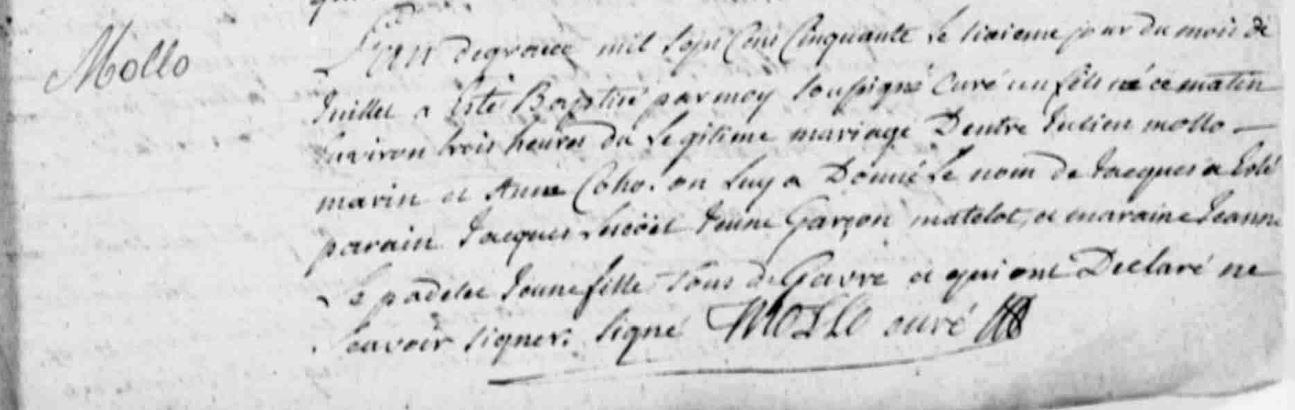 Mollo
L'an degrace mil sept Cent Cinquante Le sixieme jour du mois de
Juillet a Esté Baptisé par moy Soussigné Curé un fils né ce matin
Environ trois heures du Legitime mariage D'entre Julien mollo
marin et Anne Coho. on Luy a Donné Le nom de Jacques a Esté
parain Jacques Jeune Garçon matelot, et maraine Jeanne
Le padelec Jeune fille tous de Gavre et qui ont Declaré ne
Scavoir signer. signé MOLLO curé